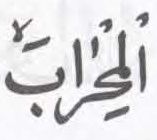 اَلْمِحْرَابَ